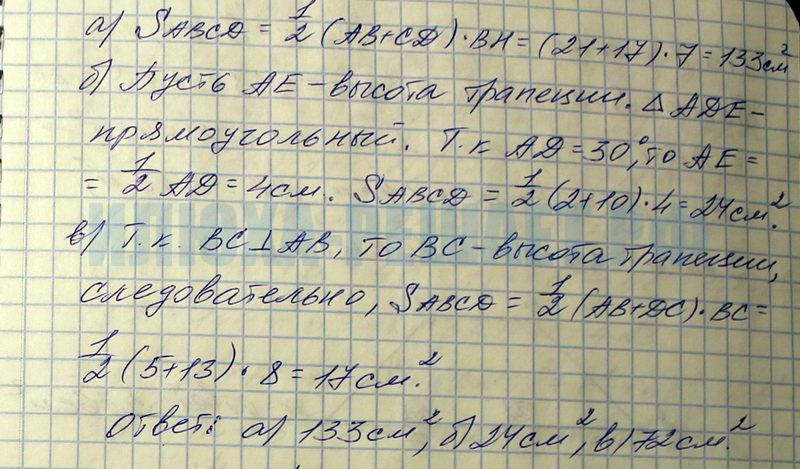 а) SABCD = 1/2 (AB+CD)·BH = (21+17)·7 = 133см²
б) Пусть AE – высота трапеции. △ ADE –
прямоугольный. Т.к AD = 30°, то AE =
= 1/2 AD = 4см. SABCD = 1/2 (2+10)·4 = 24см².
в) Т.к. BC⊥AB, то BC – высота трапеции,
следовательно, SABCD = 1/2 (AB+DC)·BC =
1/2 (5+13)·8 = 17см.²
Ответ: а) 133см², б) 24см², в) 72см.²